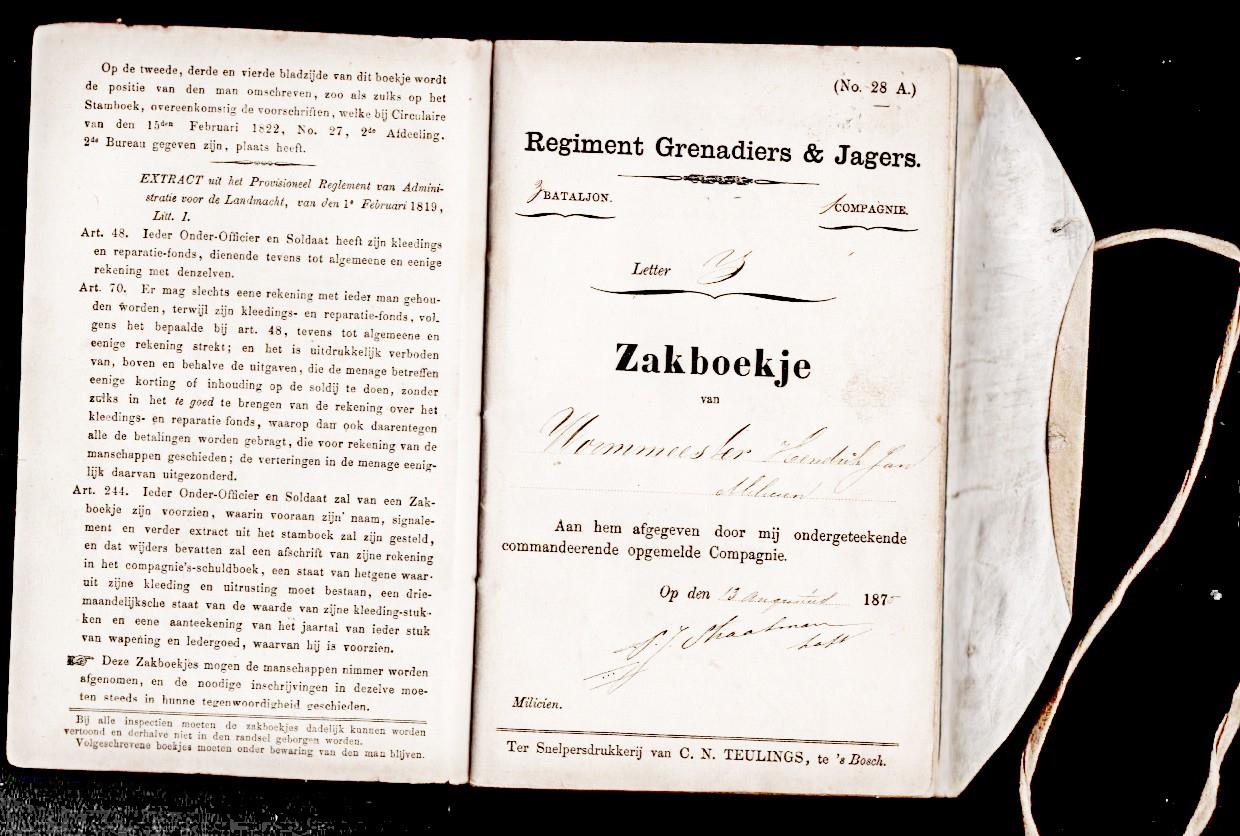 Op de tweede, derde en vierde bladzijde van dit boekje wordt
de positie van den man omschreven, zoo als zulks op het
Stamboek, overeenkomstig de voorschriften, welke bij Circulaire
van den 15den Februari 1822, No. 27, 2de Afdeeling.
2de Bureau gegeven zijn, plaats heeft.
EXTRACT uit het Provisioneel Reglement van Admini-
stratie voor de Landmacht, van den 1e Februari 1819,
Litt. I.
Art. 48. Ieder Onder-Officier en Soldaat heeft zijn kleedings
en reparatie-fonds, dienende tevens tot algemeene en eenige
rekening met denzelven.
Art. 70. Er mag slechts eene rekening met ieder man gehou-
den worden, terwijl zijn kleedings- en reparatie-fonds, vol-
gens het bepaalde bij art. 48, tevens tot algemeene en
eenige rekening strekt; en het is uitdrukkelijk verboden
van, boven en behalve de uitgaven, die de menage betreffen
eenige korting of inhouding op de soldij te doen, zonder
zulks in het te goed te brengen van de rekening over het
kleedings- en reparatie fonds, waarop dan ook daarentegen
alle de betalingen worden gebragt, die voor rekening van de
manschappen geschieden; de verteringen in de menage eenig-
lijk daarvan uitgezonderd.
Art. 244. Ieder Onder-Officier en Soldaat zal van een Zak-
boekje zijn voorzien, waarin vooraan zijn naam, signale-
ment en verder extract uit het stamboek zal zijn gesteld,
en dat wijders bevatten zal een afschrift van zijne rekening
in het compagnie's-schuldboek, een staat van hetgene waar-
uit zijne kleeding en uitrusting moet bestaan, een drie-
maandelijksche staat van de waarde van zijne kleeding-stuk-
ken en eene aanteekening van het jaartal van ieder stuk
van wapening en ledergoed, waarvan hij is voorzien.
☞ Deze Zakboekjes mogen de manschappen nimmer worden
afgenomen, en de noodige inschrijvingen in dezelve moe-
ten steeds in hunne tegenwoordigheid geschieden.
Bij alle inspectien moeten de zakboekjes dadelijk kunnen worden
vertoond en derhalve niet in den randsel geborgen worden.
Volgeschrevene boekjes moeten onder bewaring van den man blijven.
(No. 28 A.)
Regiment Grenadiers & Jagers.
3 BATALJON. 1 COMPAGNIE.
Letter
Zakboekje
van
Wormmeester Hendrik Jan
Milicien
Aan hem afgegeven door mij ondergeteekende
commandeerende opgemelde Compagnie.
Op den 13 Augustus 1875
Milicien.
Ter Snelpersdrukkerij van C. N. TEULINGS, te 's Bosch.